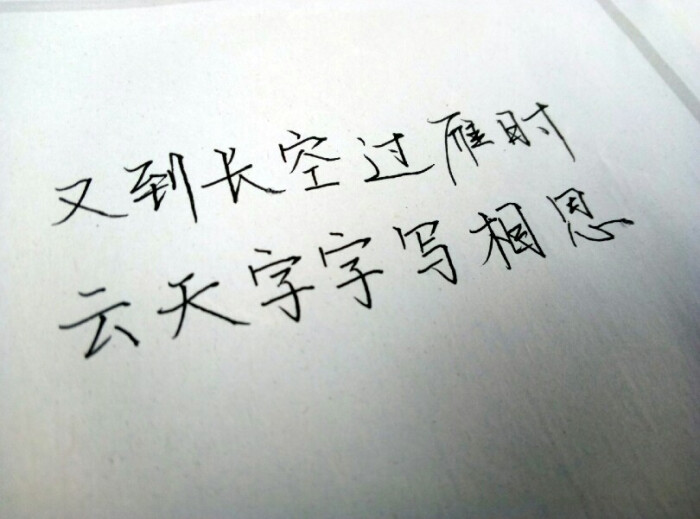 又到长空过雁时
云天字字写相思